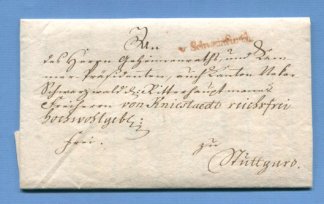 An
v Schweinfurth.
des Herrn Geheimenraths, und Kam-
mer-Präsidenten, auch Canton Neker
Schwarzwald. Ritterhauptmann
Freiherrn von Kniestaedt reichsfrei
hochwohlgebl:
frei.
zu
Stuttgard.